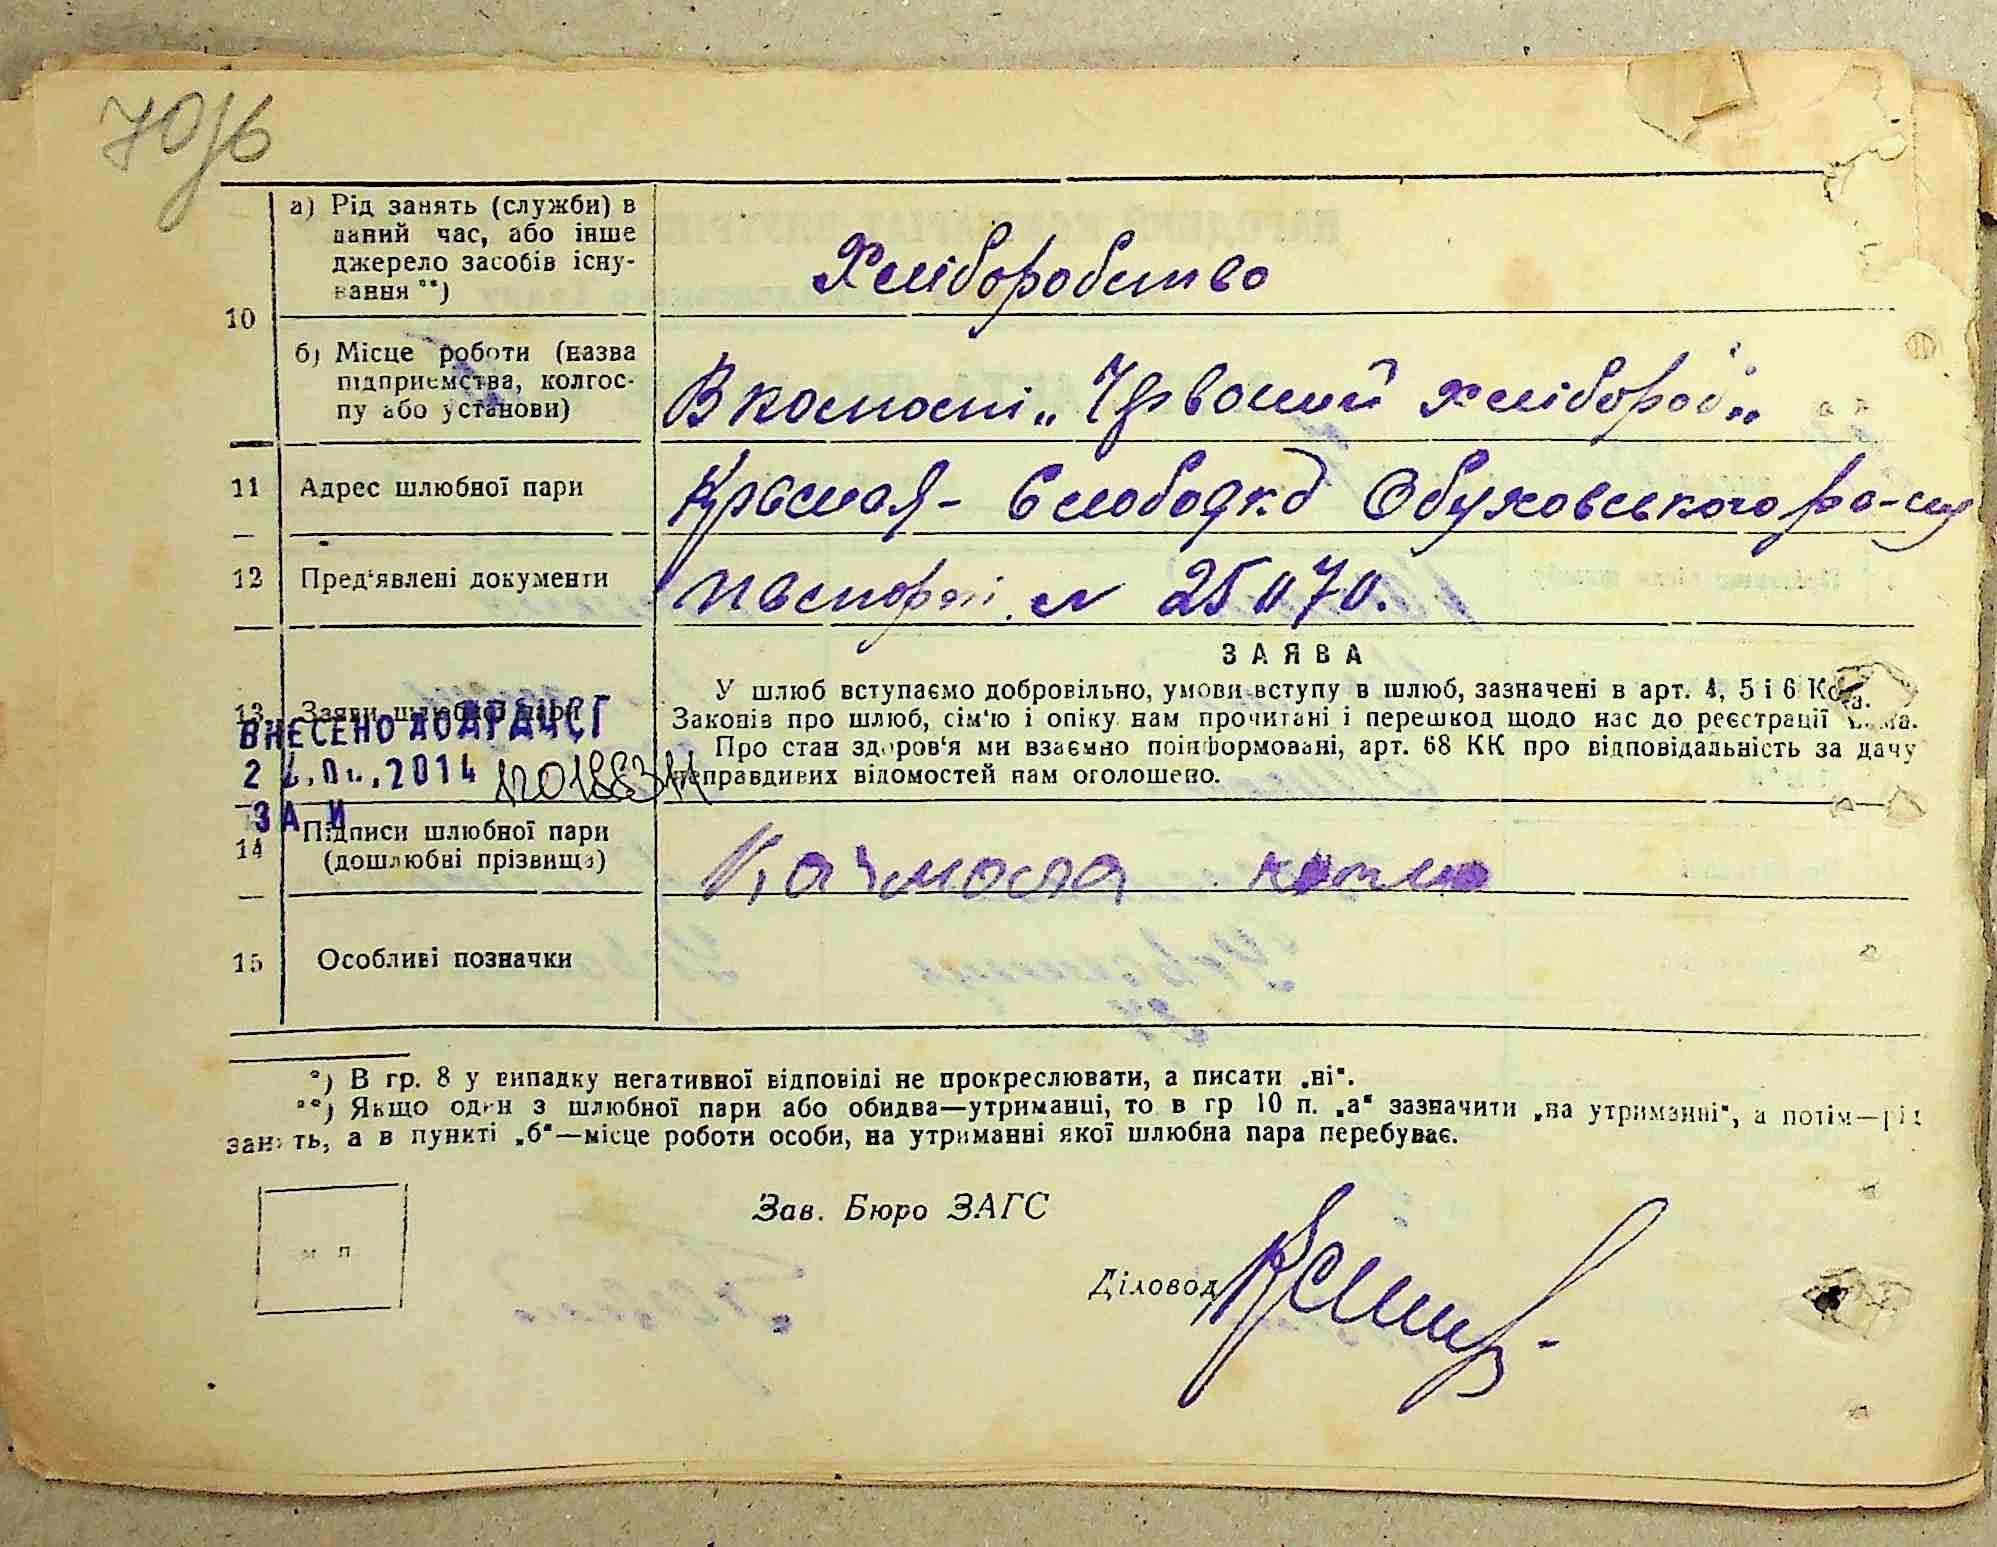 70 зв
а) Рід занять (служби) в
даний час, або інше
джерело засобів існу-
вання **)
Хліборобство
10
б) Місце роботи (назва
підприємства, колгос-
пу або установи)
В колгоспі „Червоний хлібороб"
11 Адрес шлюбної пари
Красная-Слободка Обуховського ра-ну
12 Пред'явлені документи
паспорт № 25070.
ЗАЯВА
13 Заяви шлюбної пари
У шлюб вступаємо добровільно, умови вступу в шлюб, зазначені в арт. 4, 5 і 6 Код.
Законів про шлюб, сім'ю і опіку нам прочитані і перешкод щодо нас до реєстрації нема.
Про стан здоров'я ми взаємно поінформовані, арт. 68 КК про відповідальність за дачу
неправдивих відомостей нам оголошено.
ВНЕСЕНО ДО ДРАЦСГ
2014
ЗА И
14 Підписи шлюбної пари
(дошлюбні прізвища)
15 Особливі позначки
*) В гр. 8 у випадку негативної відповіді не прокреслювати, а писати „ні".
**) Якщо один з шлюбної пари або обидва—утриманці, то в гр 10 п. „а" зазначити „на утриманні", а потім—рід
занять, а в пункті „б"—місце роботи особи, на утриманні якої шлюбна пара перебуває.
Зав. Бюро ЗАГС
м п
Діловод